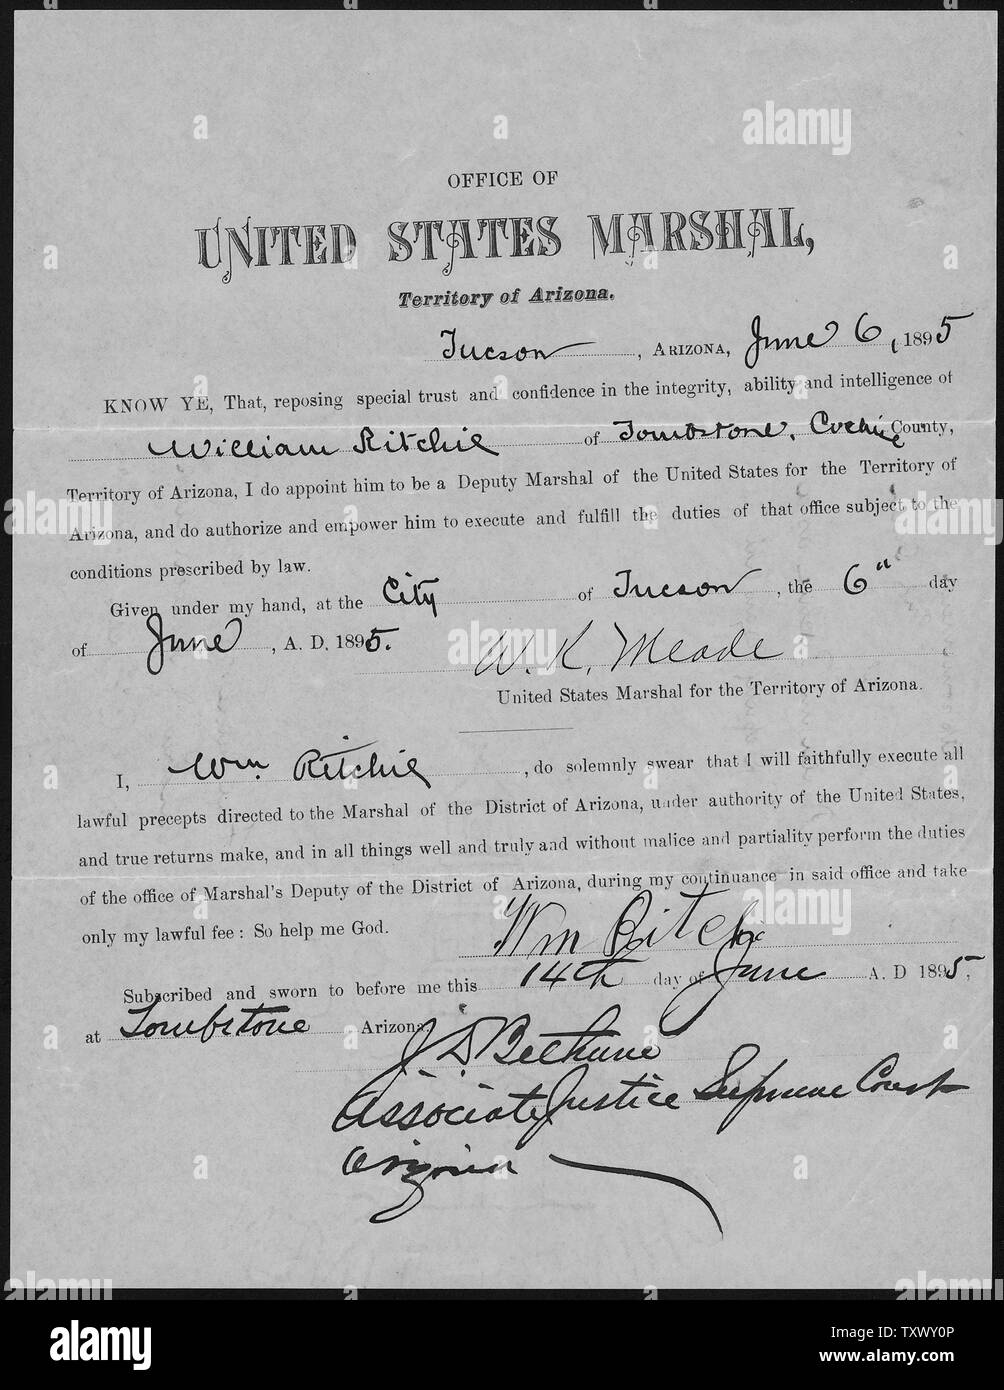 OFFICE OF
UNITED STATES MARSHAL,
Territory of Arizona.
Tucson, ARIZONA, June 6, 1895
KNOW YE, That, reposing special trust and confidence in the integrity, ability and intelligence of
William Ritchie of Tombstone, Cochise County,
Territory of Arizona, I do appoint him to be a Deputy Marshal of the United States for the Territory of
Arizona, and do authorize and empower him to execute and fulfill the duties of that office subject to the
conditions prescribed by law.
Given under my hand, at the City of Tucson, the 6" day
of June, A. D. 1895.
W. K. Meade
United States Marshal for the Territory of Arizona.
I, Wm. Ritchie, do solemnly swear that I will faithfully execute all
lawful precepts directed to the Marshal of the District of Arizona, under authority of the United States,
and true returns make, and in all things well and truly and without malice and partiality perform the duties
of the office of Marshal's Deputy of the District of Arizona, during my continuance in said office and take
only my lawful fee: So help me God.
Wm Ritchie
Subscribed and sworn to before me this 14th day of June A. D 1895,
at Tombstone Arizona
J. D. Bethune
Associate Justice Supreme Court
Arizona
alamy
Image ID: TXWY0P
www.alamy.com